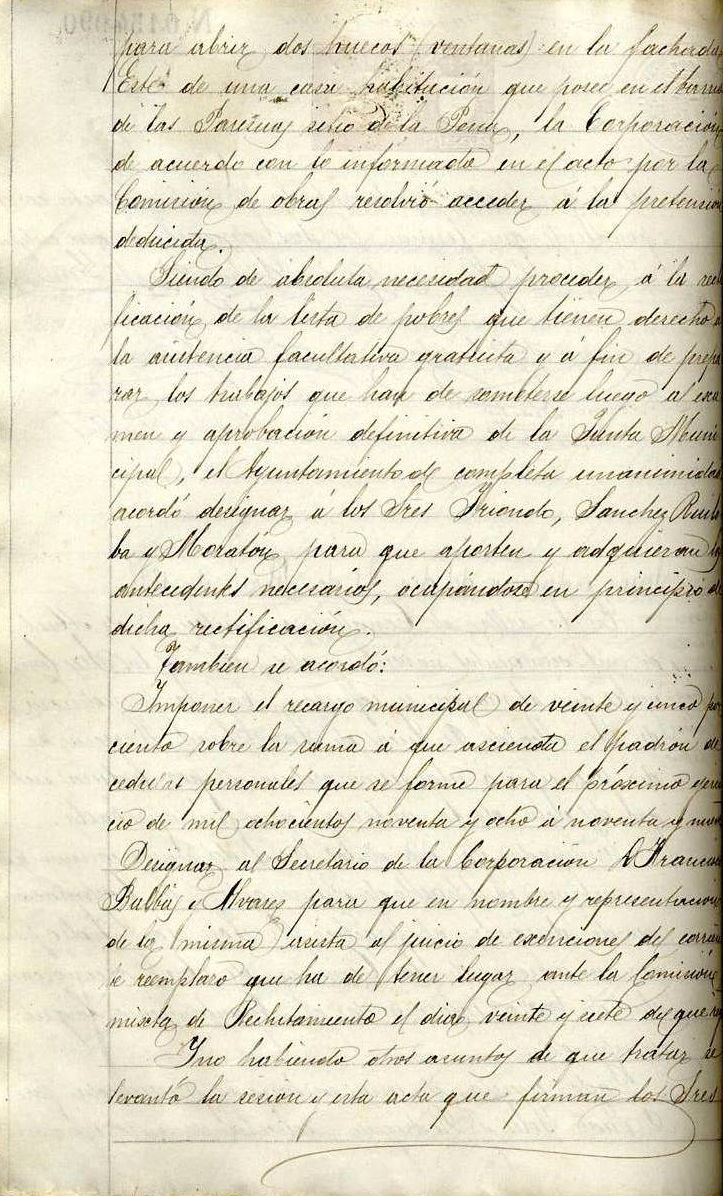 para abrir dos huecos (ventanas) en la fachada
Este de una casa habitación que posee en el barrio
de las sitio de la Pena, la Corporación
de acuerdo con lo informado en el acto por la
Comisión de obras resolvió acceder á la pretensión
deducida.
Siendo de absoluta necesidad proceder á la recti
ficación de la lista de pobres que tienen derecho á
la asistencia facultativa gratuita y á fin de prepa
rar los trabajos que han de someterse luego al exa
men y aprobación definitiva de la Junta Muni
cipal, el Ayuntamiento de completa unanimidad
acordó designar á los Sres Iriondo, Sanchez Ruilo
ba y Moratón para que aporten y adquieran los
antecedentes necesarios, ocupándose en principio de
dicha rectificación.
Tambien se acordó:
Imponer el recargo municipal de veinte y cinco por
ciento sobre la suma á que ascienda el padrón de
cedulas personales que se forme para el próximo ejerci
cio de mil ochocientos noventa y ocho á noventa y nueve
Designar al Secretario de la Corporación D. Francisco
Balbás y Alvares para que en nombre y representación
de la misma asista al juicio de exenciones del corrien
te reemplazo que ha de tener lugar ante la Comisión
mixta de Reclutamiento el dia veinte y siete del que rige
Y no habiendo otros asuntos de que tratar se
levantó la sesión y esta acta que firman los Sres